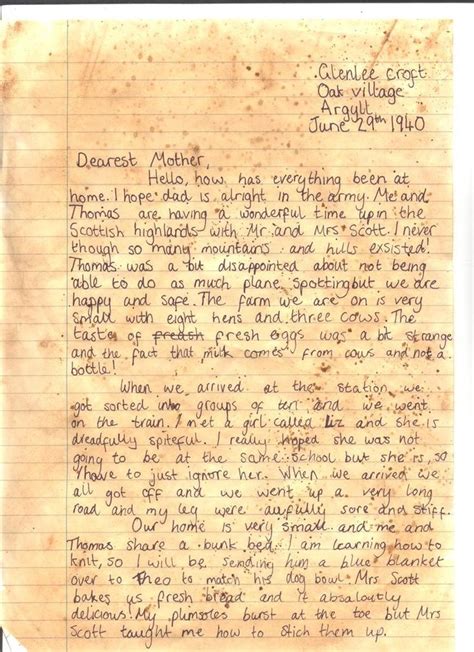 Glenlee croft
Oak village
Argyll
June 29th 1940
Dearest Mother,
Hello, how has everything been at
home. I hope dad is alright in the army. Me and
Thomas are having a wonderful time up in the
Scottish highlands with Mr and Mrs Scott. I never
though so many mountains and hills exsisted!
Thomas was a bit disappointed about not being
able to do as much plane spotting but we are
happy and safe. The farm we are on is very
small with eight hens and three cows. The
taste of fresh eggs was a bit strange
and the fact that milk comes from cows and not a
bottle!
When we arrived at the station we
got sorted into groups of ten and we went
on the train. I met a girl called Liz and she is
dreadfully spiteful. I really hoped she was not
going to be at the same school but she is, so
I have to just ignore her. When we arrived we
all got off and we went up a very long
road and my leg were awfully sore and stiff.
Our home is very small and me and
Thomas share a bunk bed. I am learning how to
knit, so I will be sending him a blue blanket
over to Theo to match his dog bowl. Mrs Scott
bakes us fresh bread and it absaloutly
delicious! My plimsoles burst at the toe but Mrs
Scott taught me how to stich them up.